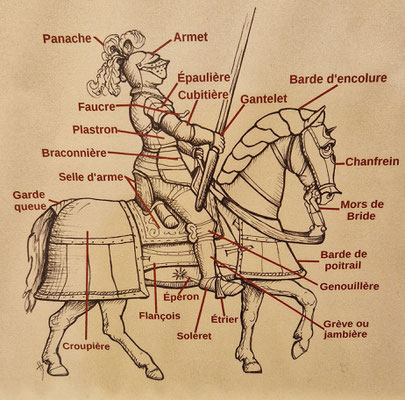 Panache
Armet
Épaulière
Cubitière
Barde d'encolure
Faucre
Gantelet
Plastron
Braconnière
Chanfrein
Selle d'arme
Garde
queue
Mors de
Bride
Barde de
poitrail
Genouillère
Éperon
Flançois
Étrier
Grève ou
jambière
Soleret
Croupière